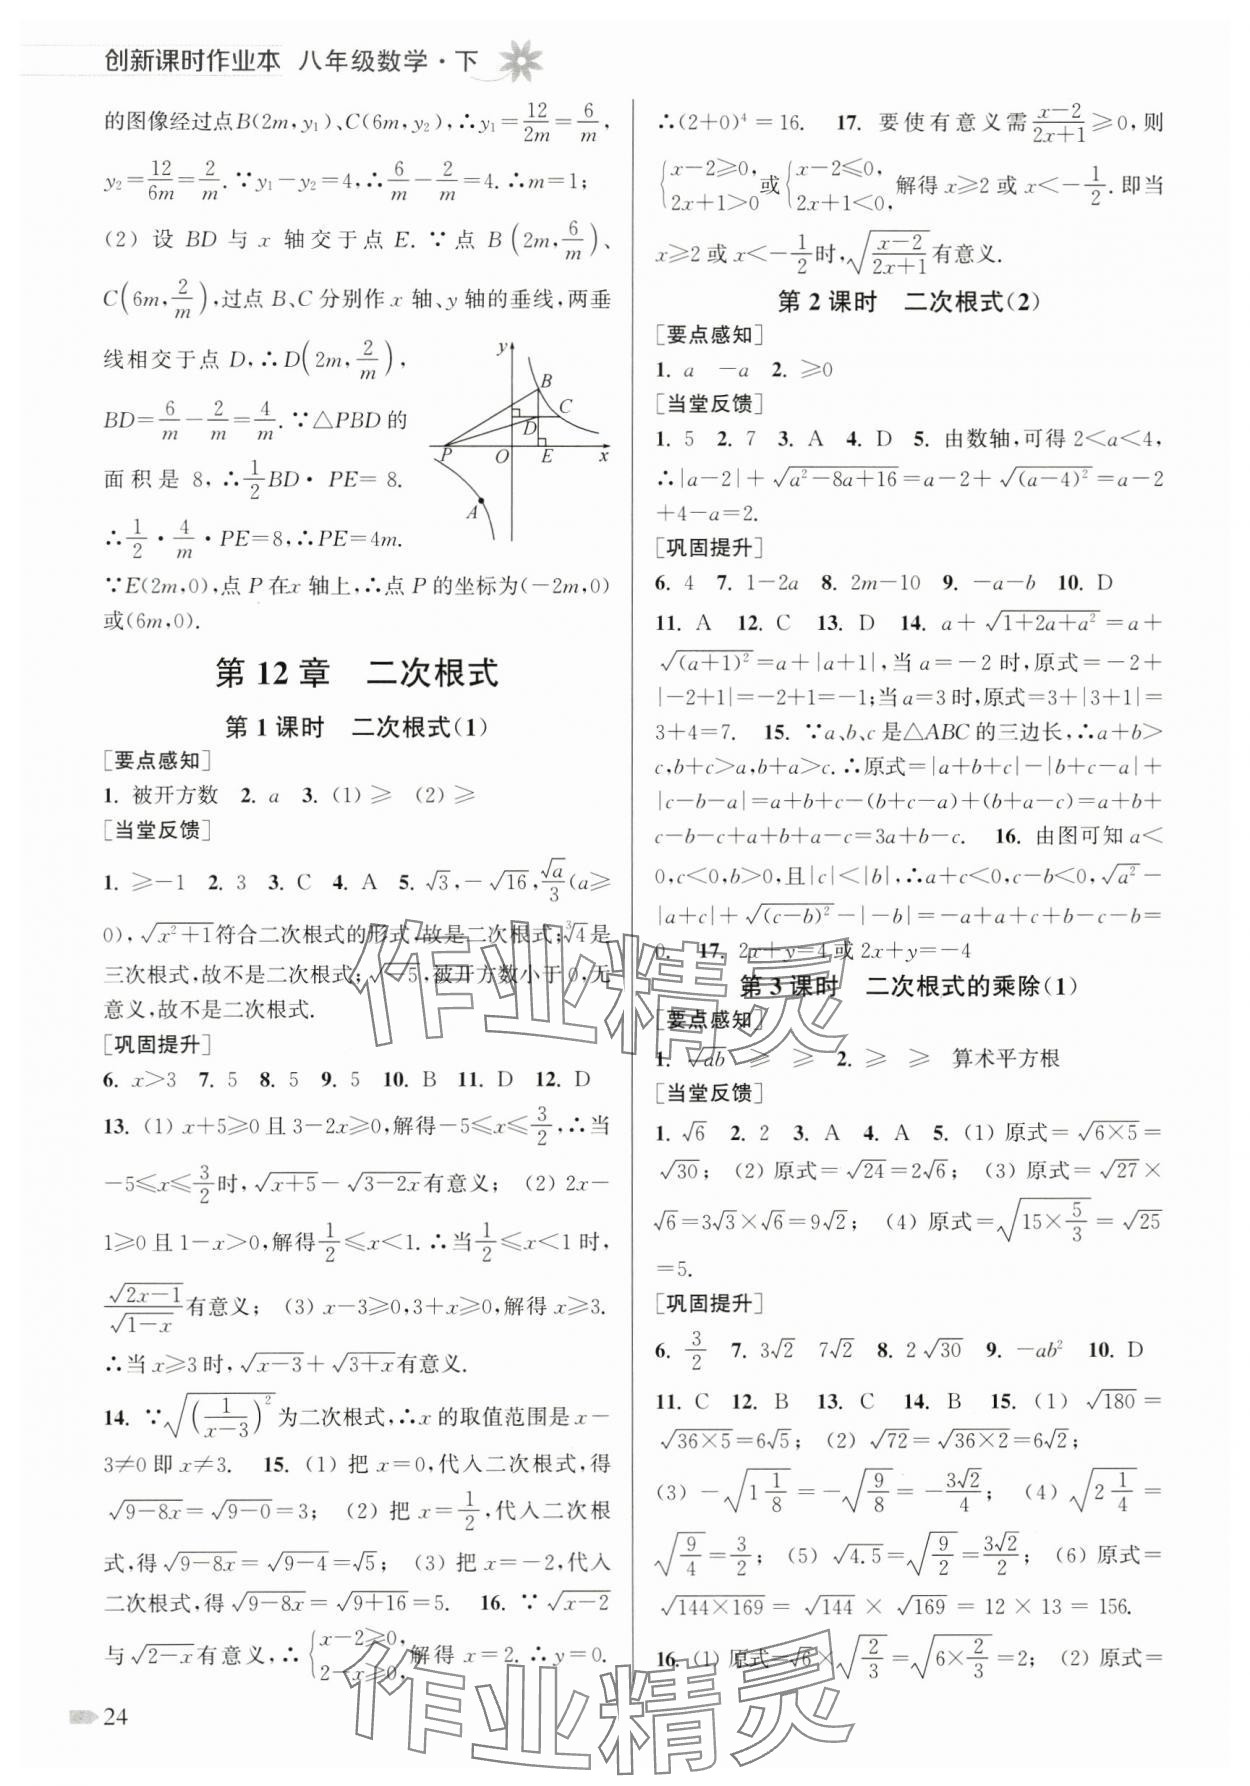 创新课时作业本 八年级数学·下
的图像经过点B(2m,y₁)、C(6m,y₂),∴y₁=12/2m=6/m,
y₂=12/6m=2/m.∵y₁-y₂=4,∴6/m-2/m=4.∴m=1;
(2) 设 BD 与 x 轴交于点 E.∵点 B(2m,6/m)、
C(6m,2/m),过点 B、C 分别作 x 轴、y 轴的垂线,两垂
线相交于点 D,∴D(2m,2/m),
BD=6/m-2/m=4/m.∵△PBD 的
面积是 8,∴1/2BD·PE=8.
∴1/2·4/m·PE=8,∴PE=4m.
y
B
C
D
P O E x
A
∵E(2m,0),点 P 在x 轴上,∴点 P 的坐标为(-2m,0)
或(6m,0).
第 12 章 二次根式
第 1 课时 二次根式(1)
[要点感知]
1. 被开方数 2. a 3. (1) ≥ (2) ≥
[当堂反馈]
1. ≥-1 2. 3 3. C 4. A 5. √3,-√16,√a/3(a≥
0),√(x²+1)符合二次根式的形式,故是二次根式;³√4是
三次根式,故不是二次根式;√-5,被开方数小于 0,无
意义,故不是二次根式.
[巩固提升]
6. x>3 7. 5 8. 5 9. 5 10. B 11. D 12. D
13. (1) x+5≥0 且 3-2x≥0,解得-5≤x≤3/2,∴当
-5≤x≤3/2时,√(x+5)-√(3-2x)有意义; (2) 2x-
1≥0 且 1-x>0,解得1/2≤x<1.∴当1/2≤x<1 时,
√(2x-1)/√(1-x)有意义; (3) x-3≥0,3+x≥0,解得 x≥3.
∴当 x≥3 时,√(x-3)+√(3+x)有意义.
14. ∵√((1/(x-3))²)为二次根式,∴x 的取值范围是 x-
3≠0 即 x≠3. 15. (1) 把 x=0,代入二次根式,得
√(9-8x)=√(9-0)=3; (2) 把 x=1/2,代入二次根
式,得√(9-8x)=√(9-4)=√5; (3) 把 x=-2,代入
二次根式,得√(9-8x)=√(9+16)=5. 16. ∵√(x-2)
与√(2-x)有意义,∴{x-2≥0, 2-x≥0, 解得 x=2.∴y=0.
24
∴(2+0)⁴=16. 17. 要使有意义需(x-2)/(2x+1)≥0,则
{x-2≥0, 2x+1>0 或{x-2≤0, 2x+1<0, 解得 x≥2 或 x<-1/2.即当
x≥2 或 x<-1/2时,√((x-2)/(2x+1))有意义.
第 2 课时 二次根式(2)
[要点感知]
1. a -a 2. ≥0
[当堂反馈]
1. 5 2. 7 3. A 4. D 5. 由数轴,可得 2<a<4,
∴|a-2|+√(a²-8a+16)=a-2+√((a-4)²)=a-2
+4-a=2.
[巩固提升]
6. 4 7. 1-2a 8. 2m-10 9. -a-b 10. D
11. A 12. C 13. D 14. a+√(1+2a+a²)=a+
√((a+1)²)=a+|a+1|,当 a=-2 时,原式=-2+
|-2+1|=-2+1=-1;当 a=3 时,原式=3+|3+1|=
3+4=7. 15. ∵a、b、c 是△ABC 的三边长,∴a+b>
c,b+c>a,b+a>c.∴原式=|a+b+c|-|b+c-a|+
|c-b-a|=a+b+c-(b+c-a)+(b+a-c)=a+b+
c-b-c+a+b+a-c=3a+b-c. 16. 由图可知 a<
0,c<0,b>0,且|c|<|b|,∴a+c<0,c-b<0,√a²-
|a+c|+√((c-b)²)-|-b|=-a+a+c+b-c-b=
0. 17. 2x+y=4 或 2x+y=-4
第 3 课时 二次根式的乘除(1)
[要点感知]
1. √ab ≥ ≥ 2. ≥ ≥ 算术平方根
[当堂反馈]
1. √6 2. 2 3. A 4. A 5. (1) 原式=√(6×5)=
√30; (2) 原式=√24=2√6; (3) 原式=√27×
√6=3√3×√6=9√2; (4) 原式=√(15×5/3)=√25
=5.
[巩固提升]
6. 3/2 7. 3√2 7√2 8. 2√30 9. -ab² 10. D
11. C 12. B 13. C 14. B 15. (1) √180=
√(36×5)=6√5; (2) √72=√(36×2)=6√2;
(3) -√(1 1/8)=-√(9/8)=-3√2/4; (4) √(2 1/4)=
√(9/4)=3/2; (5) √4.5=√(9/2)=3√2/2; (6) 原式=
√(144×169)=√144×√169=12×13=156.
16. (1) 原式=√6×√(2/3)=√(6×2/3)=2; (2) 原式=
作业精灵
作业精灵